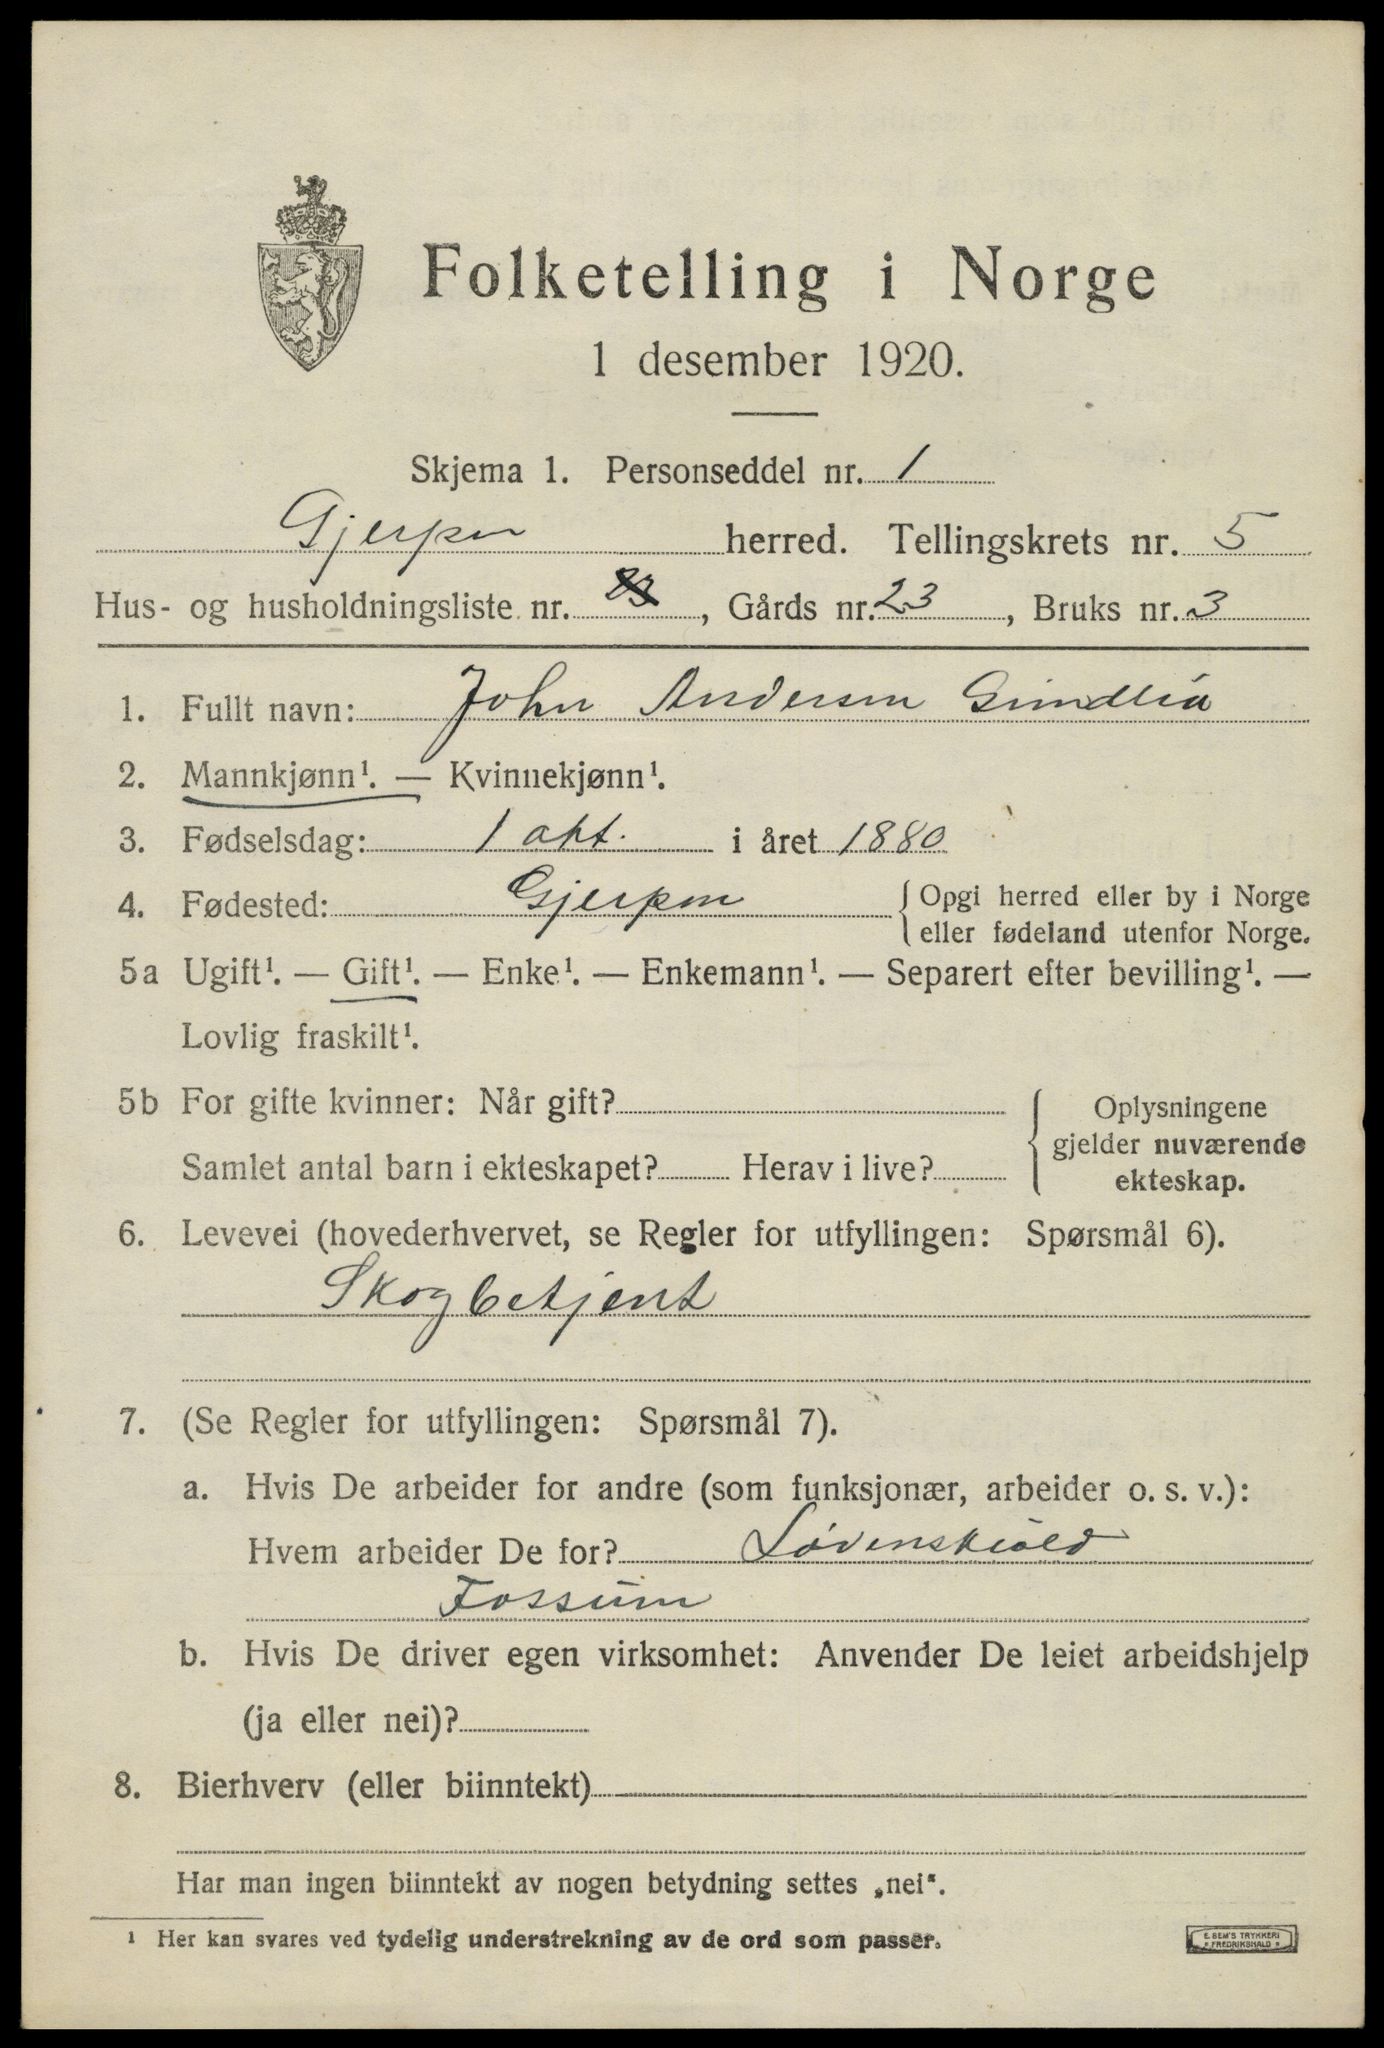 Folketelling i Norge
1 desember 1920.
Skjema 1. Personseddel nr. 1
Gjerpen herred. Tellingskrets nr. 5
Hus- og husholdningsliste nr. 23, Gårds nr. 23, Bruks nr. 3
1. Fullt navn: John Andersen Grindlia
2. Mannkjønn¹. — Kvinnekjønn¹.
3. Fødselsdag: 1 okt. i året 1880
4. Fødested: Gjerpen {Opgi herred eller by i Norge
eller fødeland utenfor Norge.
5a Ugift¹. — Gift¹. — Enke¹. — Enkemann¹. — Separert efter bevilling¹. —
Lovlig fraskilt¹.
5b For gifte kvinner: Når gift? { Oplysningene
gjelder nuværende
Samlet antal barn i ekteskapet? Herav i live?
ekteskap.
6. Levevei (hovederhvervet, se Regler for utfyllingen: Spørsmål 6).
Skogbetjent
7. (Se Regler for utfyllingen: Spørsmål 7).
a. Hvis De arbeider for andre (som funksjonær, arbeider o. s. v.):
Hvem arbeider De for? Løvenskiold
Fossum
b. Hvis De driver egen virksomhet: Anvender De leiet arbeidshjelp
(ja eller nei)?
8. Bierhverv (eller biinntekt)
Har man ingen biinntekt av nogen betydning settes „nei".
¹ Her kan svares ved tydelig understrekning av de ord som passer.
E. SEM'S TRYKKERI
* FREDRIKSHALD *